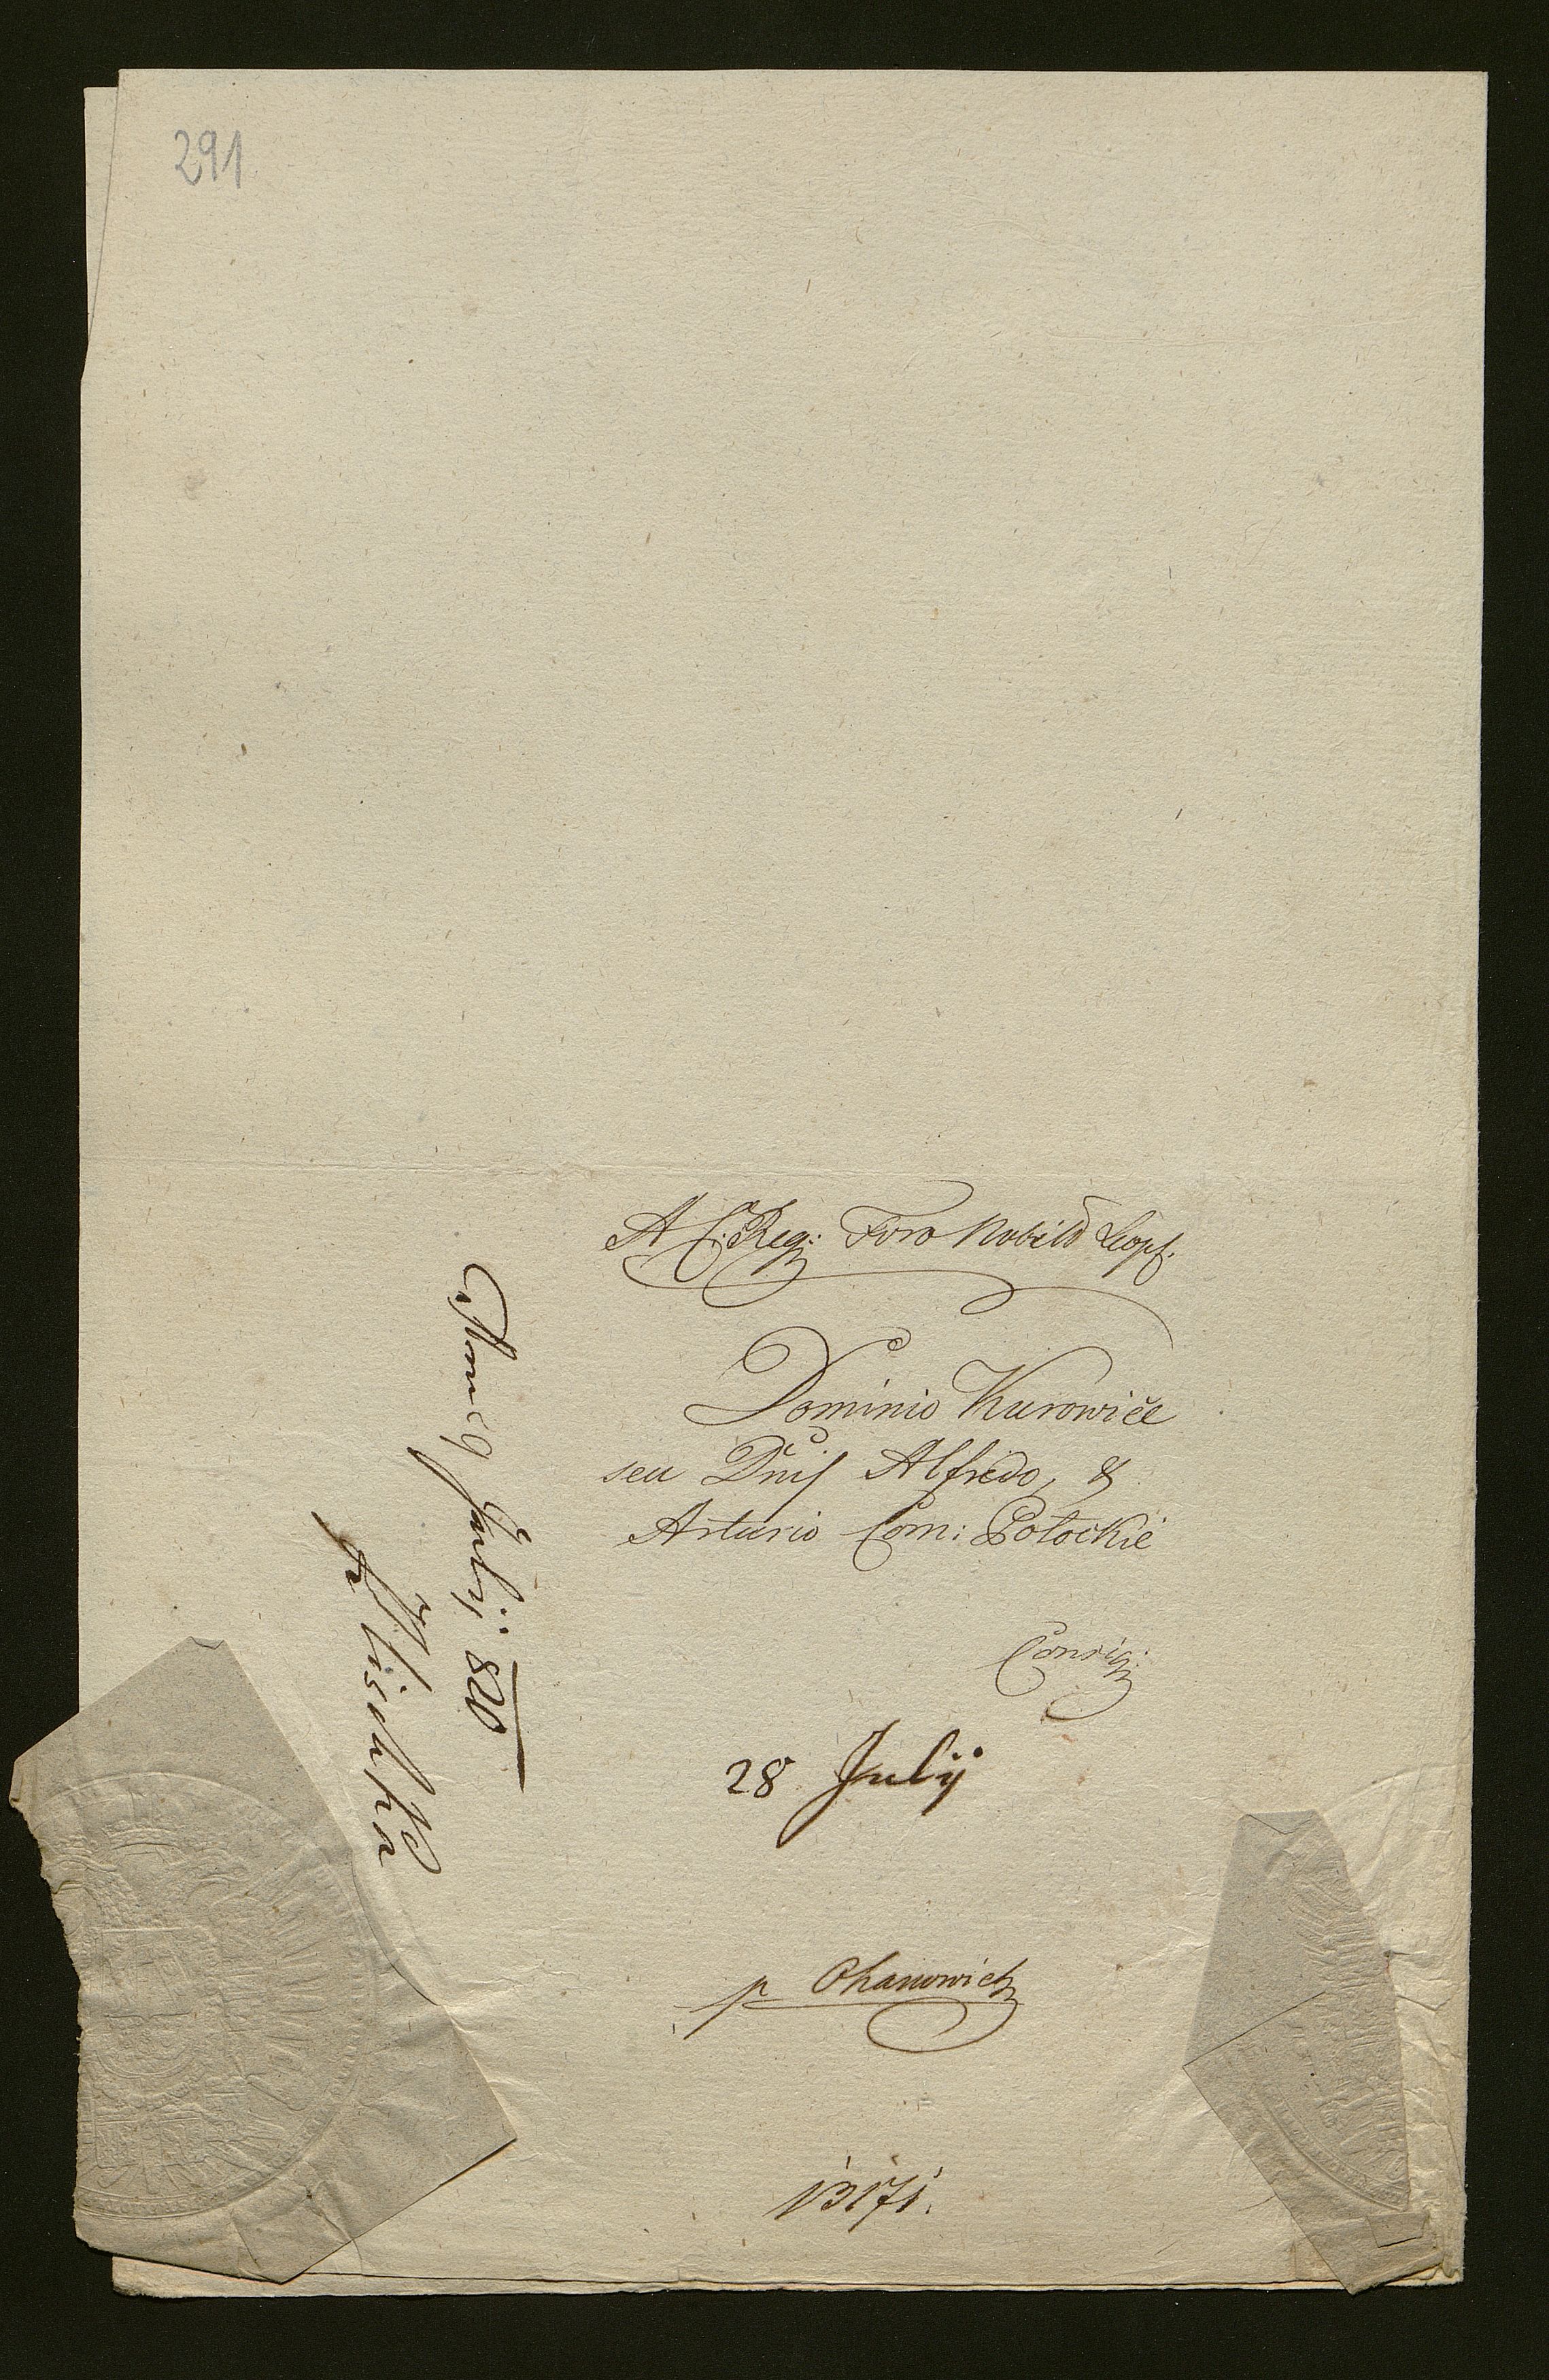 291
A C: Reg: Foro Nobil Leopl.
Dominio Kurowice
seu Dnis Alfredo, &
Arturio Com: Potockie
Consig:
28 Julij
p Ohanowicz
13171.
9 Julij 820